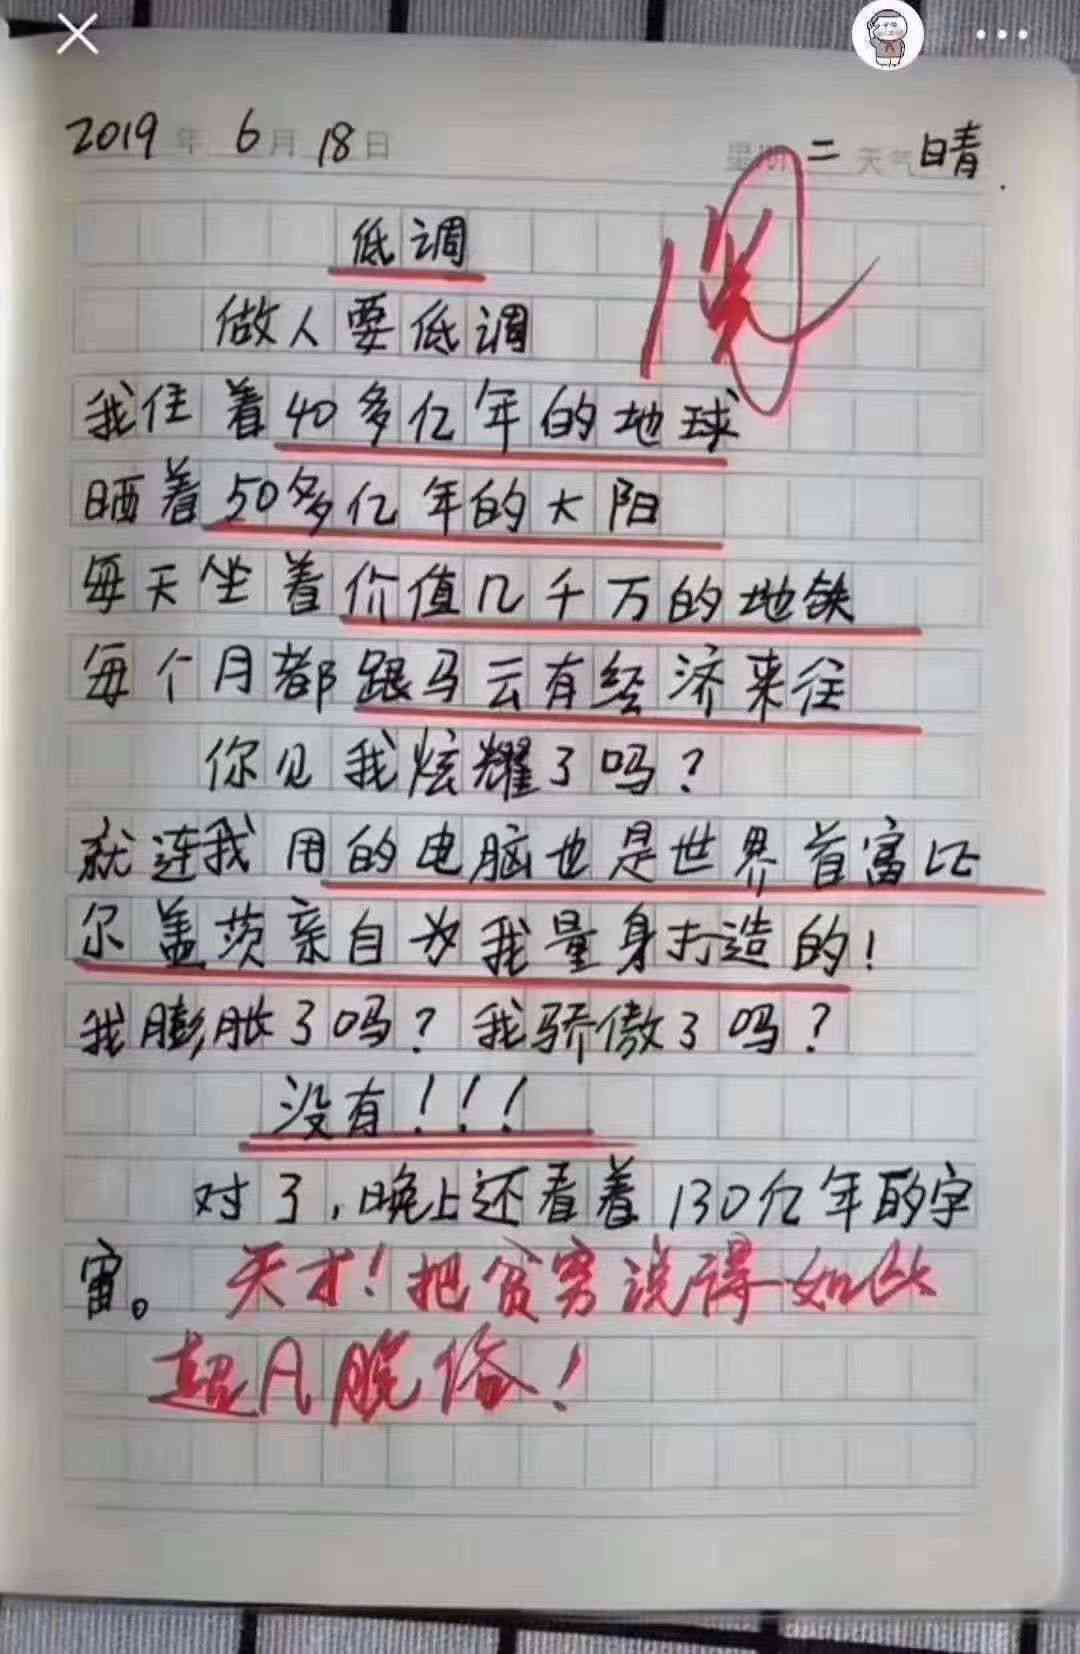 2019年 6月 18日 星期二 天气晴
低调
做人要低调
我住着40多亿年的地球
晒着50多亿年的大阳
每天坐着价值几千万的地铁
每个月都跟马云有经济来往
你见我炫耀了吗?
就连我用的电脑也是世界首富比
尔盖茨亲自为我量身打造的!
我膨胀了吗?我骄傲了吗?
没有!!!
对了,晚上还看着130亿年的宇
宙。天才!把贫穷说得如此
超凡脱俗!